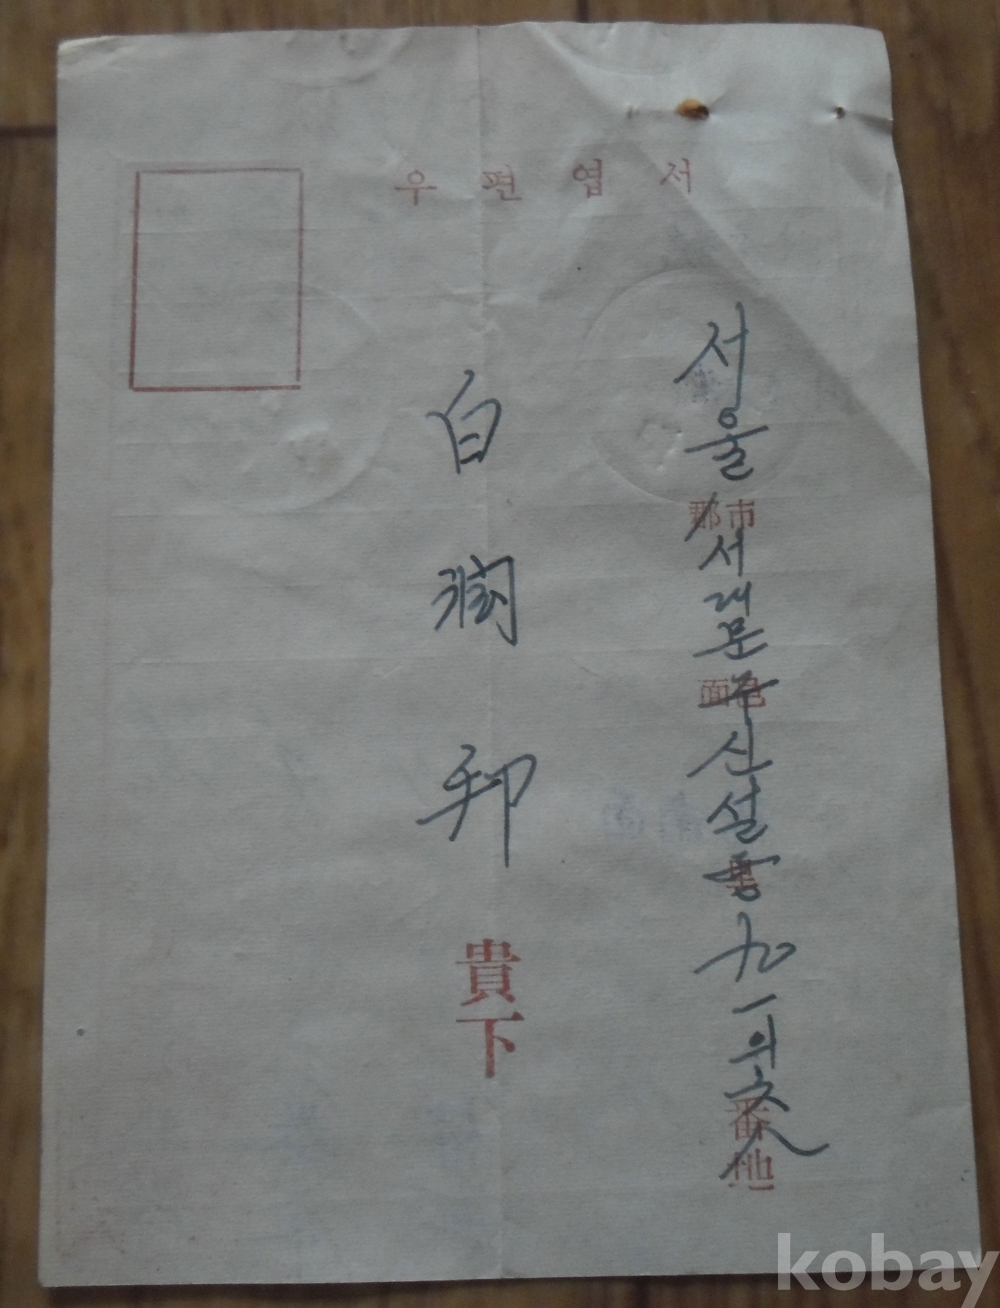 우편엽서
서울
郡市
서대문구
面邑
신설동
九一의
番地
白潤邦
貴下
kobay